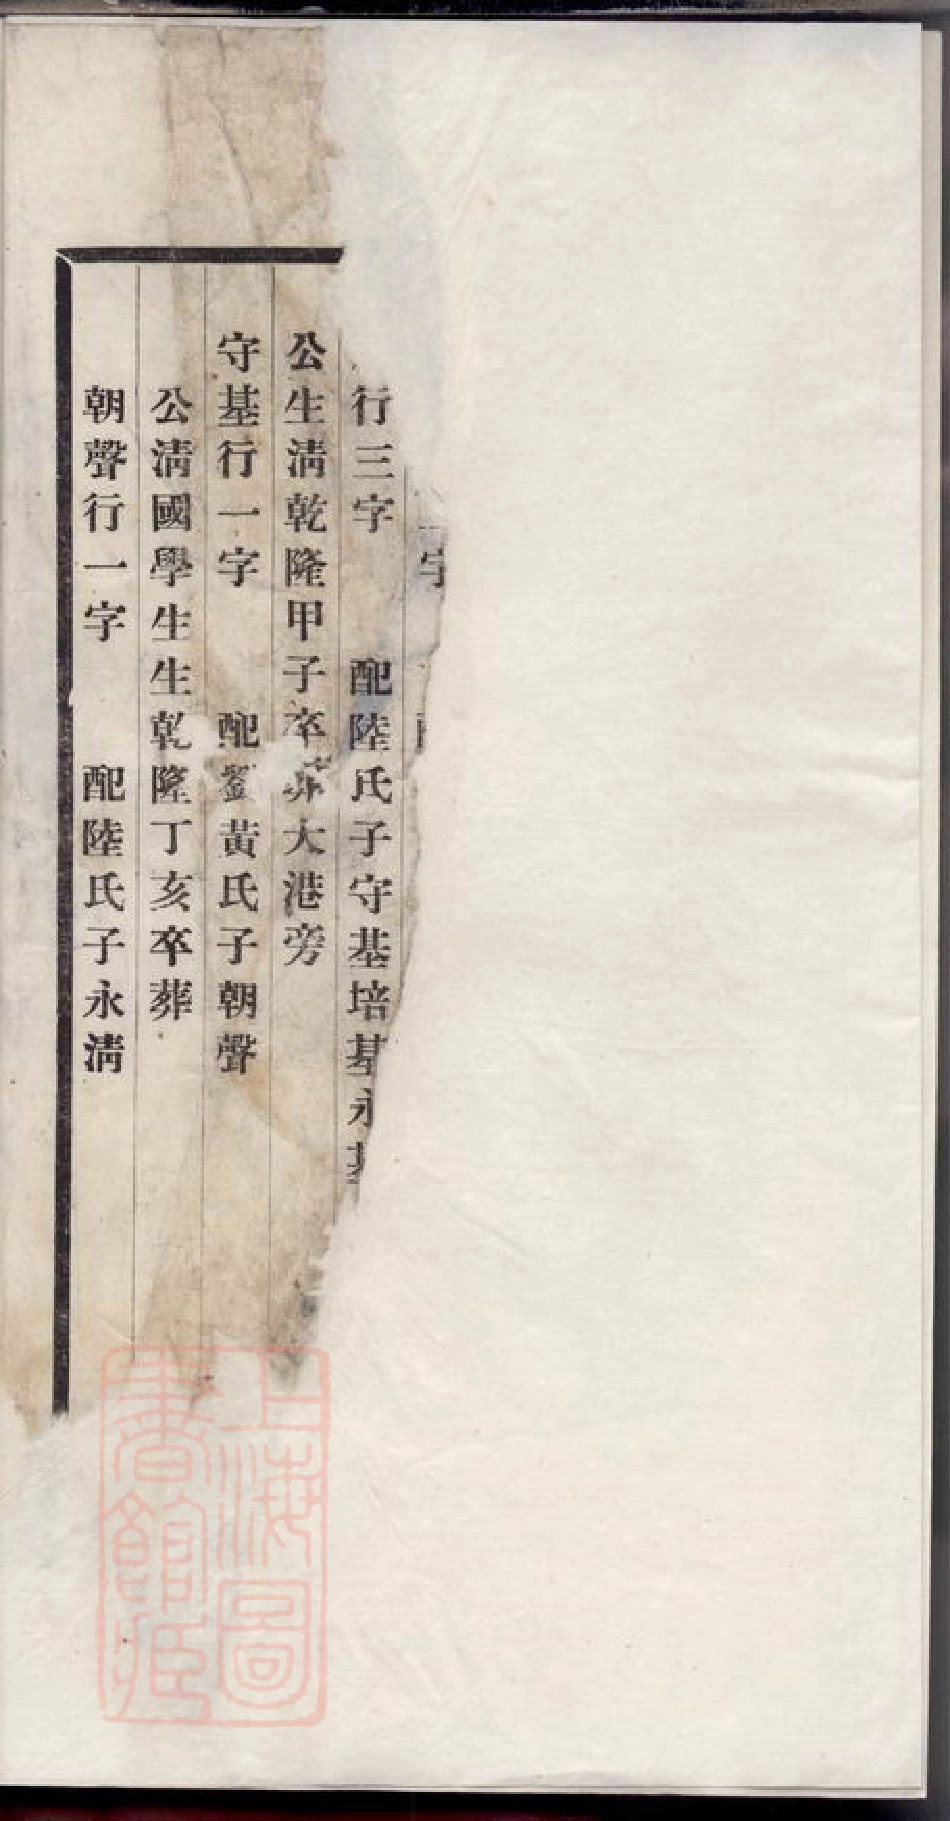 字
行三字　配陸氏子守基培基永基
公生淸乾隆甲子卒葬大港旁
守基行一字　配劉黃氏子朝聲
公淸國學生生乾隆丁亥卒葬
朝聲行一字　配陸氏子永淸
上海圖
書館藏